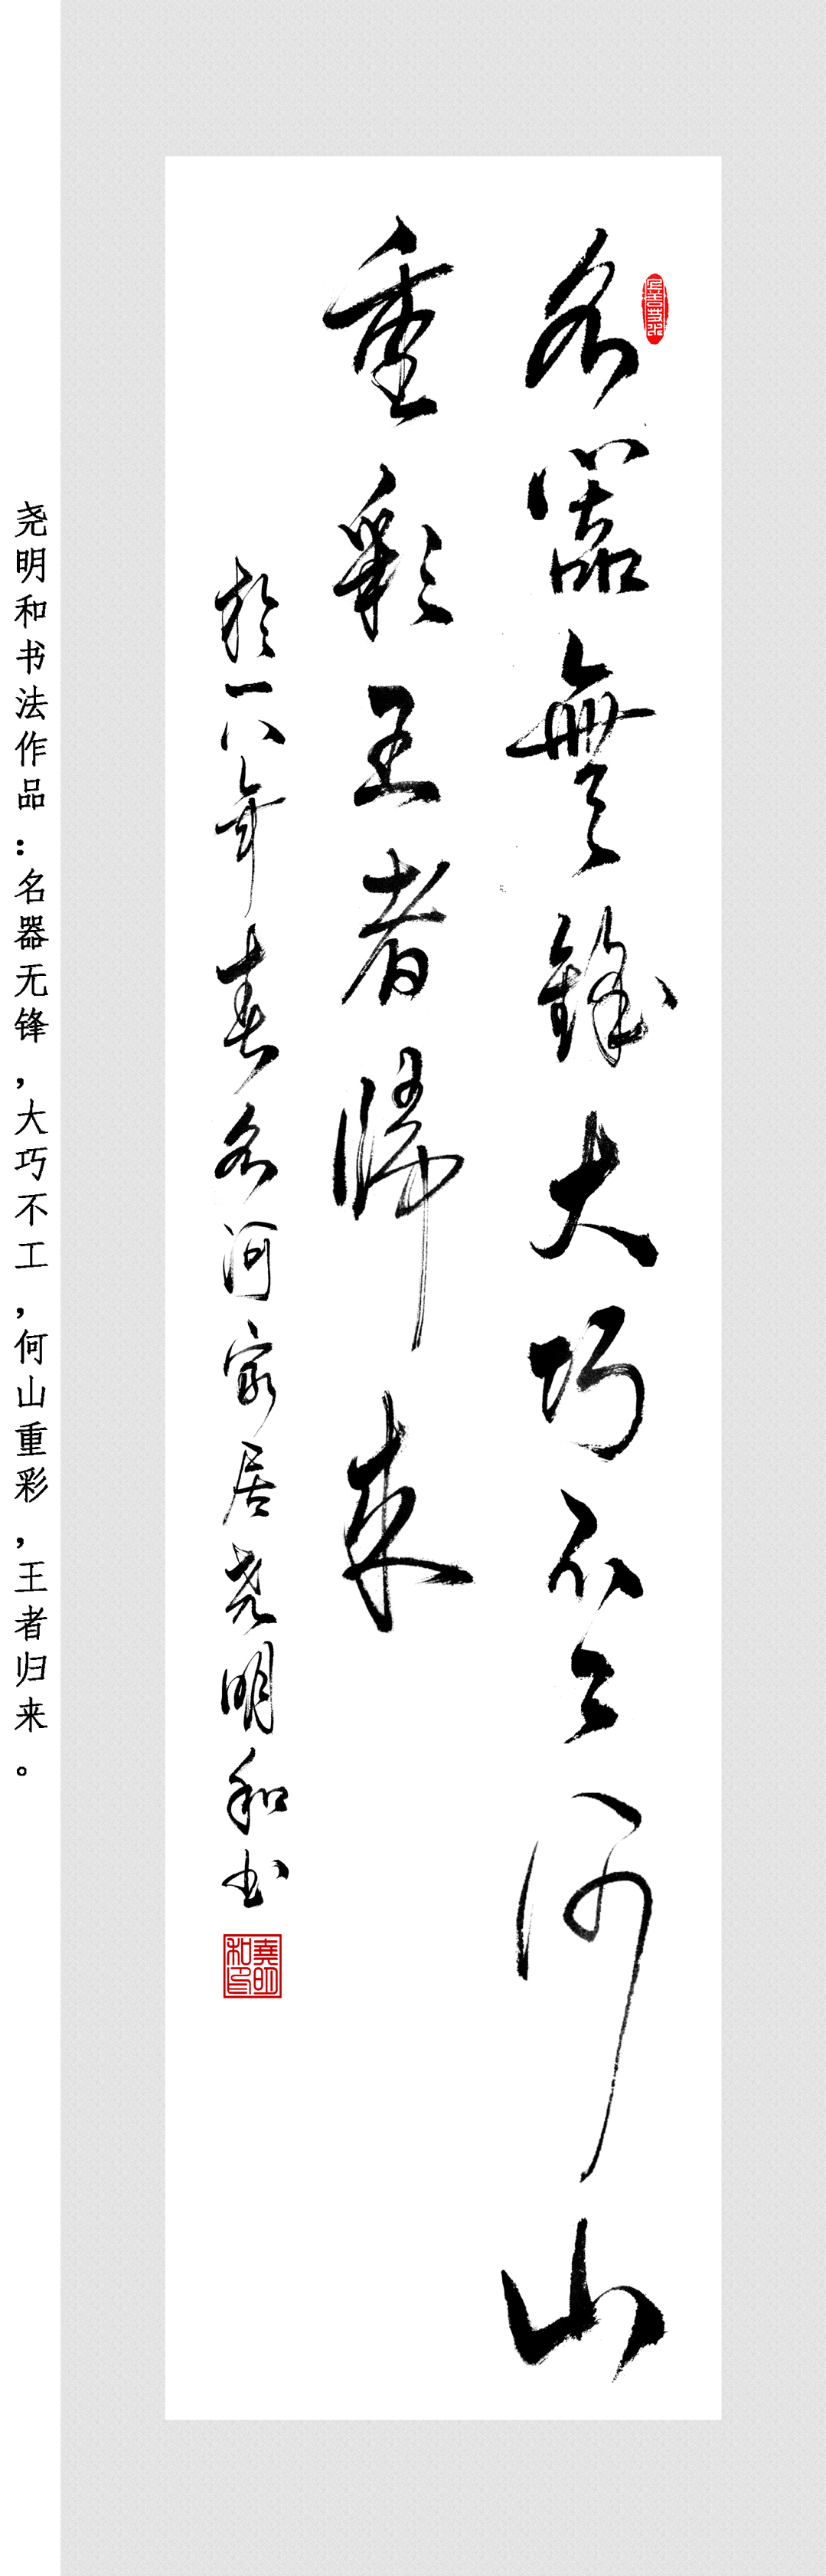 名器無鋒大巧不工何山
重彩王者歸來
於一八年春名河家居尧明和书
堯明和印
尧明和书法作品：名器无锋，大巧不工，何山重彩，王者归来。